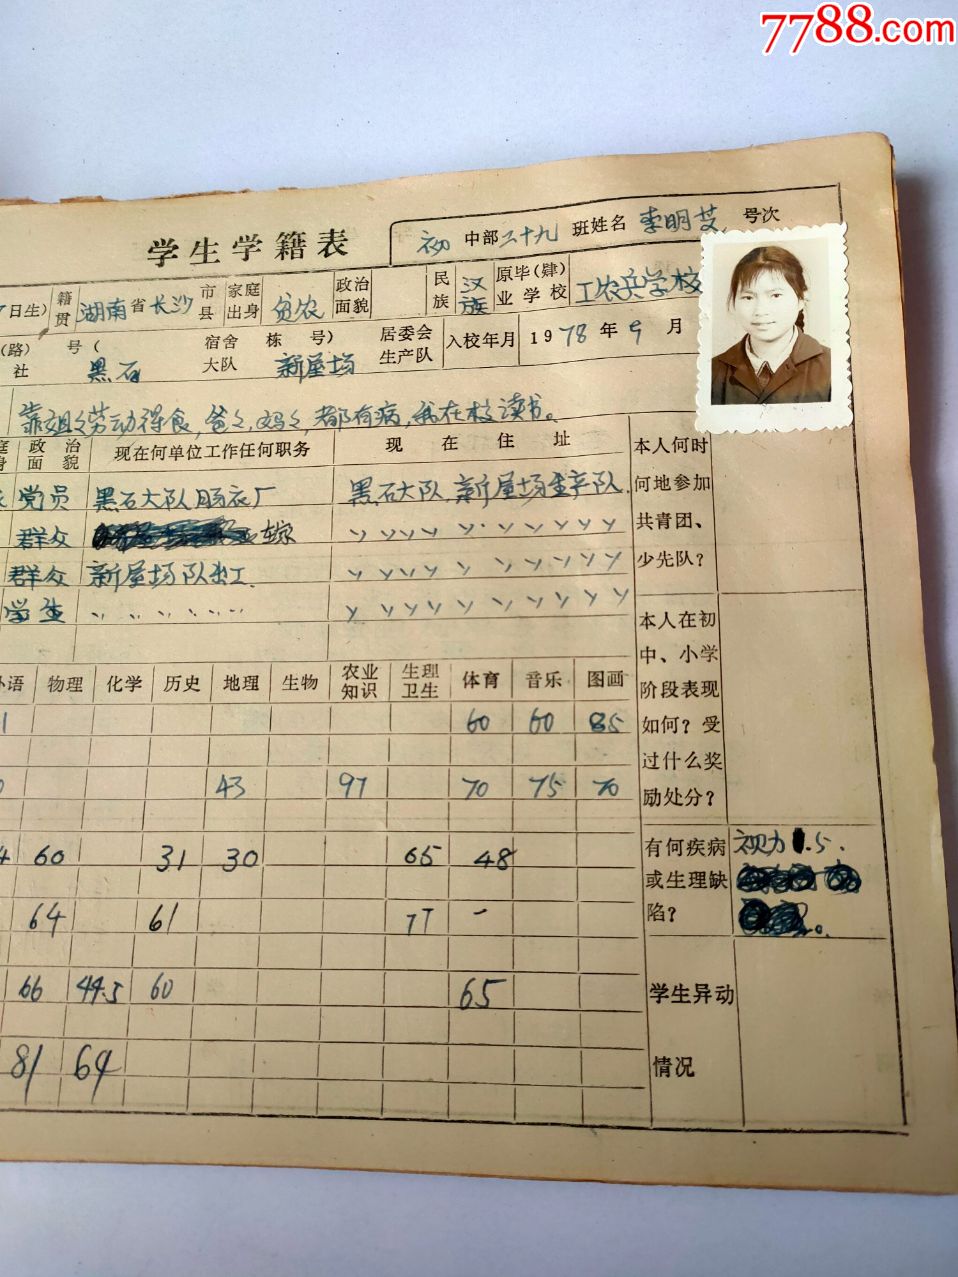 7788.com
学生学籍表
初中部二十九班姓名 李明艾 号次
日生) 籍贯 湖南省长沙市县 家庭出身 贫农 政治面貌 民族 汉族 原毕(肄)业学校 工农兵学校
(路) 号( 宿舍 栋 号) 居委会 入校年月 1978年9月
社 黑石 大队 新屋场 生产队
靠姐々劳动得食,爸々,妈々都有病,我在校读书。
政治面貌 现在何单位工作任何职务 现在住址 本人何时何地参加共青团、少先队?
党员 黑石大队肠衣厂 黑石大队新屋场生产队.
群众 在家 〃〃〃〃〃〃〃〃〃〃
群众 新屋场队出工. 〃〃〃〃〃〃〃〃〃〃
学生 〃〃〃〃〃〃 〃〃〃〃〃〃〃〃〃〃
本人在初中、小学阶段表现如何?受过什么奖励处分?
外语 物理 化学 历史 地理 生物 农业知识 生理卫生 体育 音乐 图画
1 60 60 85
43 97 70 75 70
4 60 31 30 65 48
64 61 77 -
66 44.5 60 65
81 64
有何疾病或生理缺陷? 视力1.5.
学生异动情况